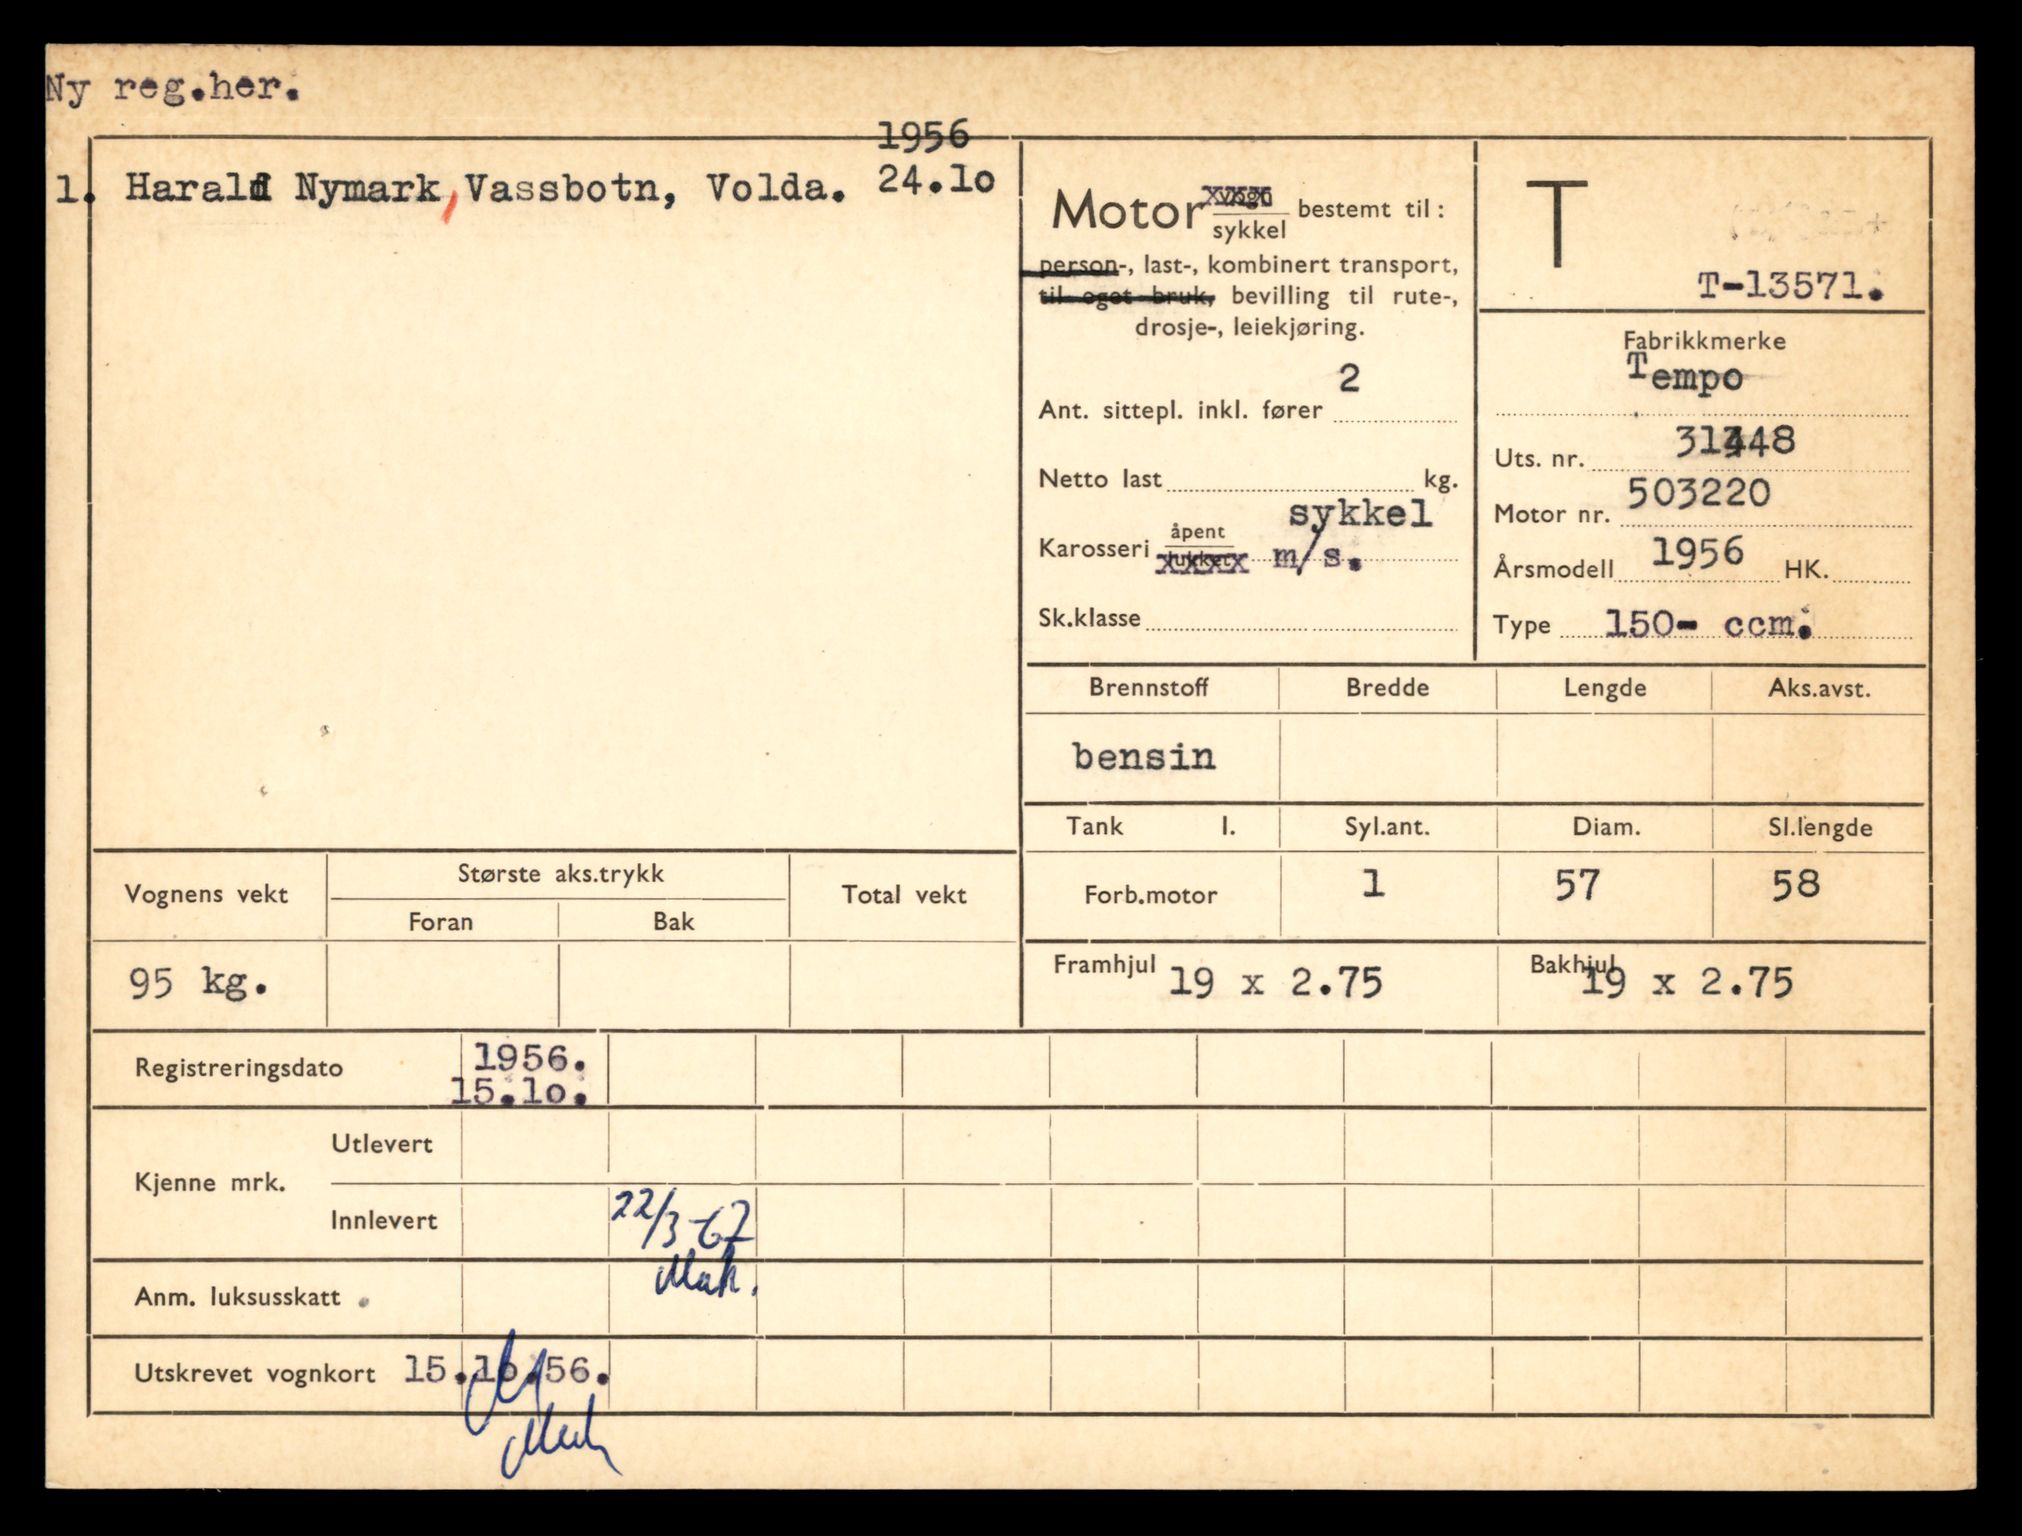 Ny reg.her.
1956
1. Harald Nymark, Vassbotn, Volda. 24.10
Motor sykkel bestemt til:
person-, last-, kombinert transport,
til eget bruk, bevilling til rute-,
drosje-, leiekjøring.
Ant. sittepl. inkl. fører 2
Netto last kg.
Karosseri åpent lukket sykkel m/s.
Sk.klasse
T
T-13571.
Fabrikkmerke
Tempo
Uts. nr.
Motor nr. 503220
Årsmodell 1956 HK.
Type 150- ccm.
Brennstoff Bredde Lengde Aks.avst.
bensin
Tank l. Syl.ant. Diam. Sl.lengde
Forb.motor 1 57 58
Framhjul 19 x 2.75 Bakhjul 19 x 2.75
Vognens vekt Største aks.trykk Total vekt
Foran Bak
95 kg.
Registreringsdato 1956.
15.10.
Kjenne mrk. Utlevert
Innlevert 22/3-67
Anm. luksusskatt
Utskrevet vognkort 15.10.56.